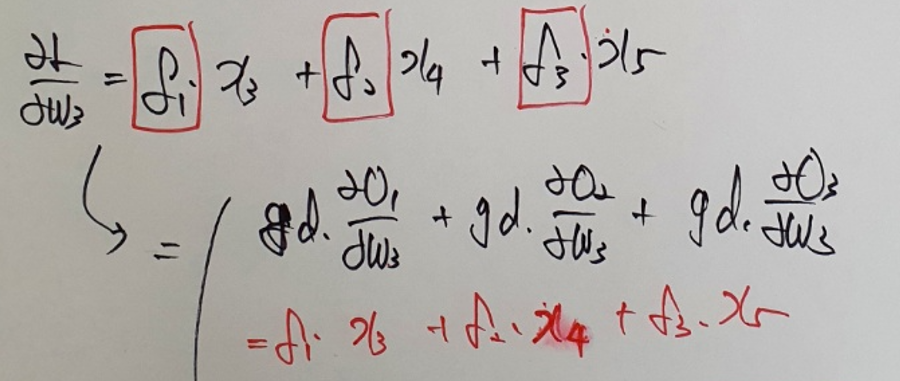 ∂L/∂W₃ = f₁· x₃ + f₂ x₄ + f₃· x₅
= ( gd. ∂O₁/∂W₃ + gd. ∂O₂/∂W₃ + gd. ∂O₃/∂W₃
= f₁· x₃ + f₂· x₄ + f₃. x₅